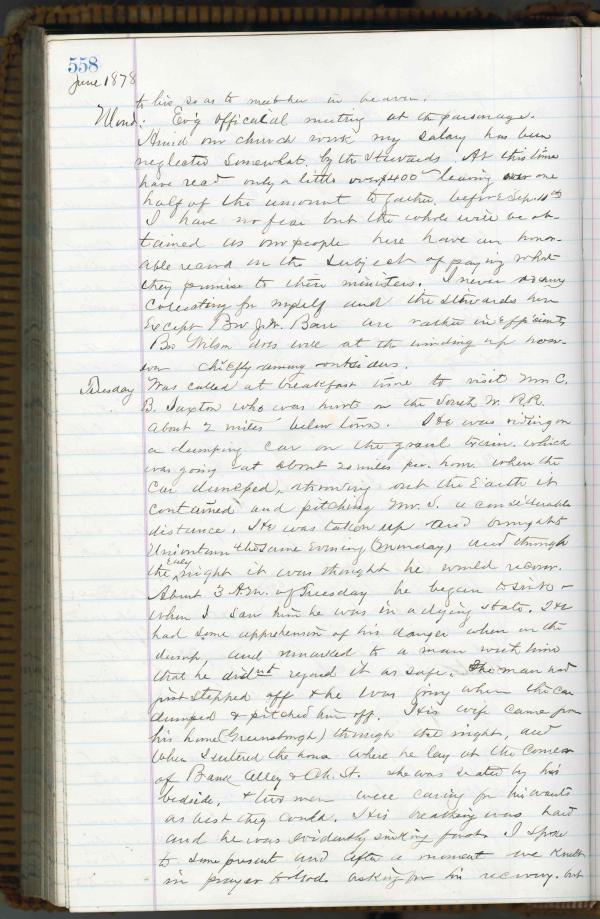 558
June 1878
to live so as to meet her in heaven.
Mond: Ev'g official meeting at the parsonage.
Amid our church work my salary has been
neglected somewhat by the Stewards. At this time
have recd only a little over $400 leaving over one
half of the amount to gather before Sep. 10th
I have no fear but the whole will be ob-
tained as our people here have an honor-
able record on the subject of paying what
they promise to their ministers. I never
collecting for myself and the stewards here
except Bro J. W. Barr are rather inefficient,
Bro. Wilson does well at the winding up how-
ever chiefly among outsiders.
Tuesday Was called at breakfast time to visit Mr. C.
B. Saxton who was hurt on the South W. R.R.
about 2 miles below town. He was riding on
a dumping car on the gravel train. which
was going at about 20 miles per. hour when the
car dumped, throwing out the Earth it
contained and pitching Mr. S. a considerable
distance. He was taken up and brought
Uniontown the same Evening (Monday) and through
the early night it was thought he would recover.
About 3 A.M. of Tuesday he began to sink -
when I saw him he was in a dying state. He
had some apprehension of his danger when on the
dump, and remarked to a man with him
that he did not regard it as safe. The man had
just stepped off & he was going when the car
dumped & pitched him off. His wife came from
his home (Greensburgh) through the night, and
when I entered the house where he lay at the corner
of Bank Alley & Ch. St. she was seated by his
bedside, & two men were caring for his wants
as best they could. His breathing was hard
and he was evidently sinking fast. I spoke
to some present and after a moment we knelt
in prayer to God asking for his recovery. but